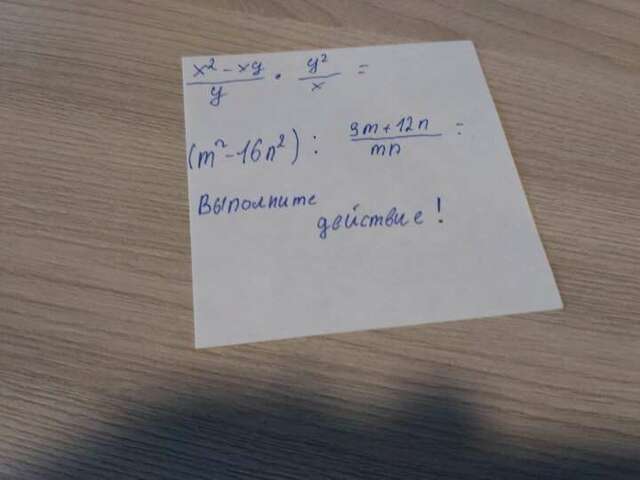 x² - xy / y · y² / x =
(m² - 16n²) : 3m + 12n / mn =
Выполните
действие!